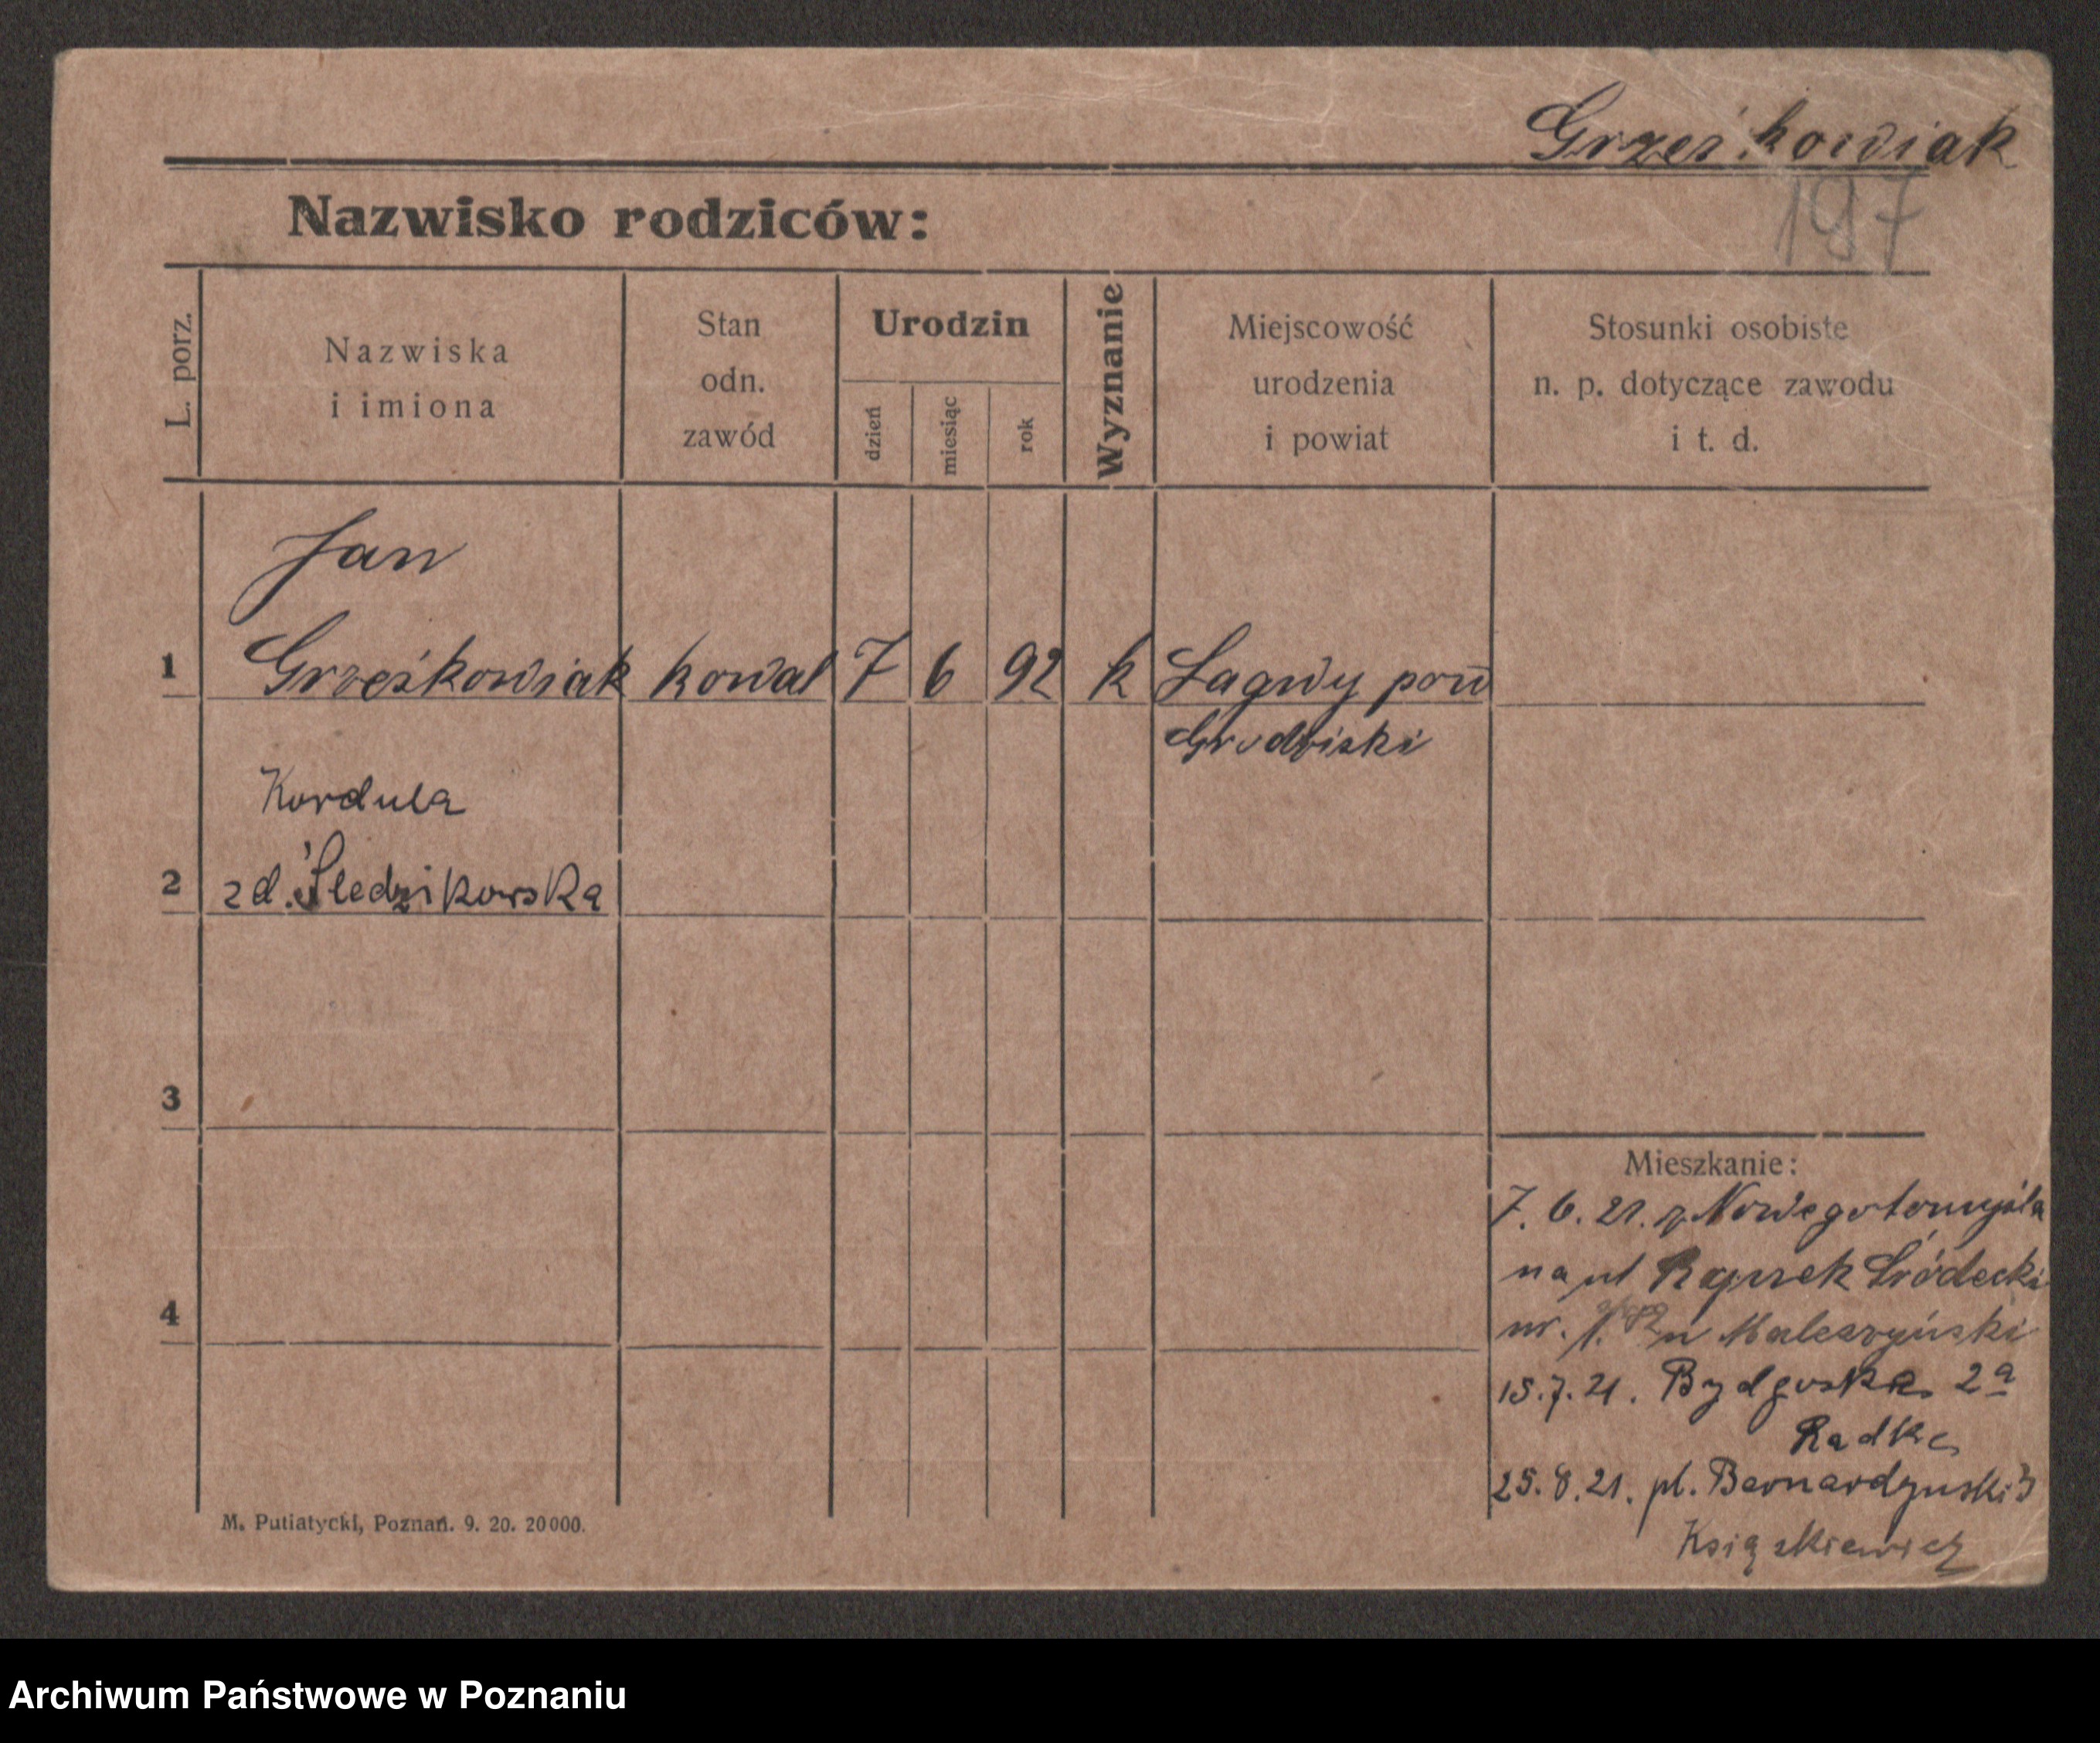 Grześkowiak
197
Nazwisko rodziców:
L. porz.
Nazwiska
i imiona
Stan
odn.
zawód
Urodzin
dzień
miesiąc
rok
Wyznanie
Miejscowość
urodzenia
i powiat
Stosunki osobiste
n. p. dotyczące zawodu
i t. d.
Jan
1 Grześkowiak kowal 7 6 92 k Łagwy pow
Grodziski
Kordula
2 zd. Śledzikowska
3
Mieszkanie:
7. 6. 21. z Nowegotomyśla
na ul Rynek Śródecki
4
nr. 1. Maleszyński
15.7.21. Bydgoska 2a
Radke
25.8.21. pl. Bernardynski 3
Książkiewicz
M. Putiatycki, Poznań. 9. 20. 20000.
Archiwum Państwowe w Poznaniu